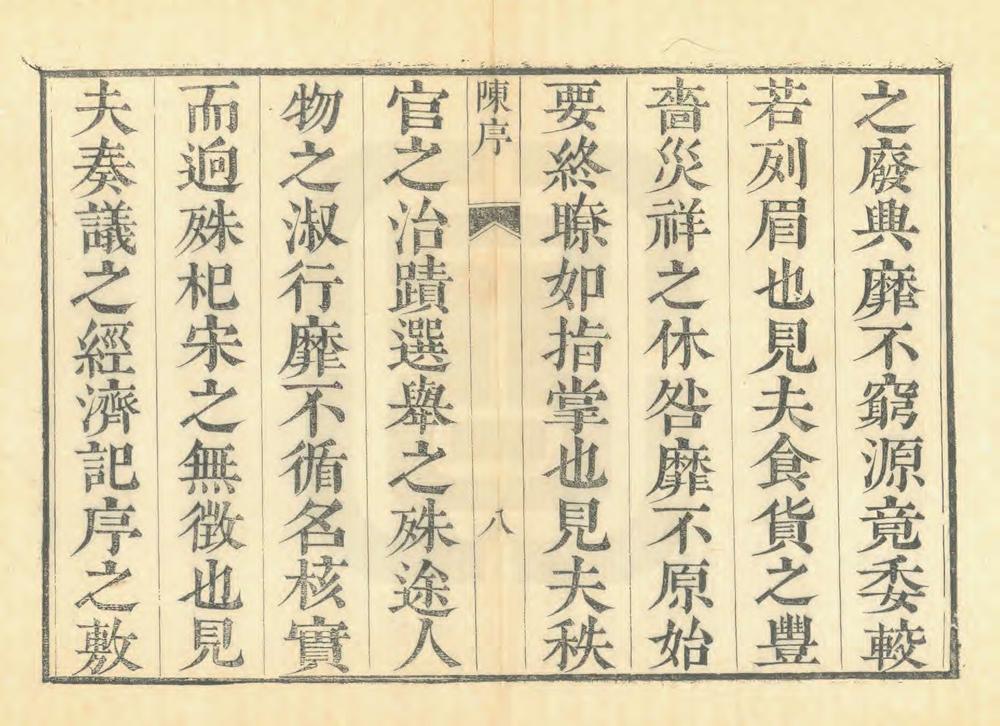 之廢興靡不窮源竟委較
若列眉也見夫食貨之豐
嗇災祥之休咎靡不原始
要終瞭如指掌也見夫秩
陳序
八
官之治蹟選舉之殊途人
物之淑行靡不循名核實
而逈殊杞宋之無徵也見
夫奏議之經濟記序之敷